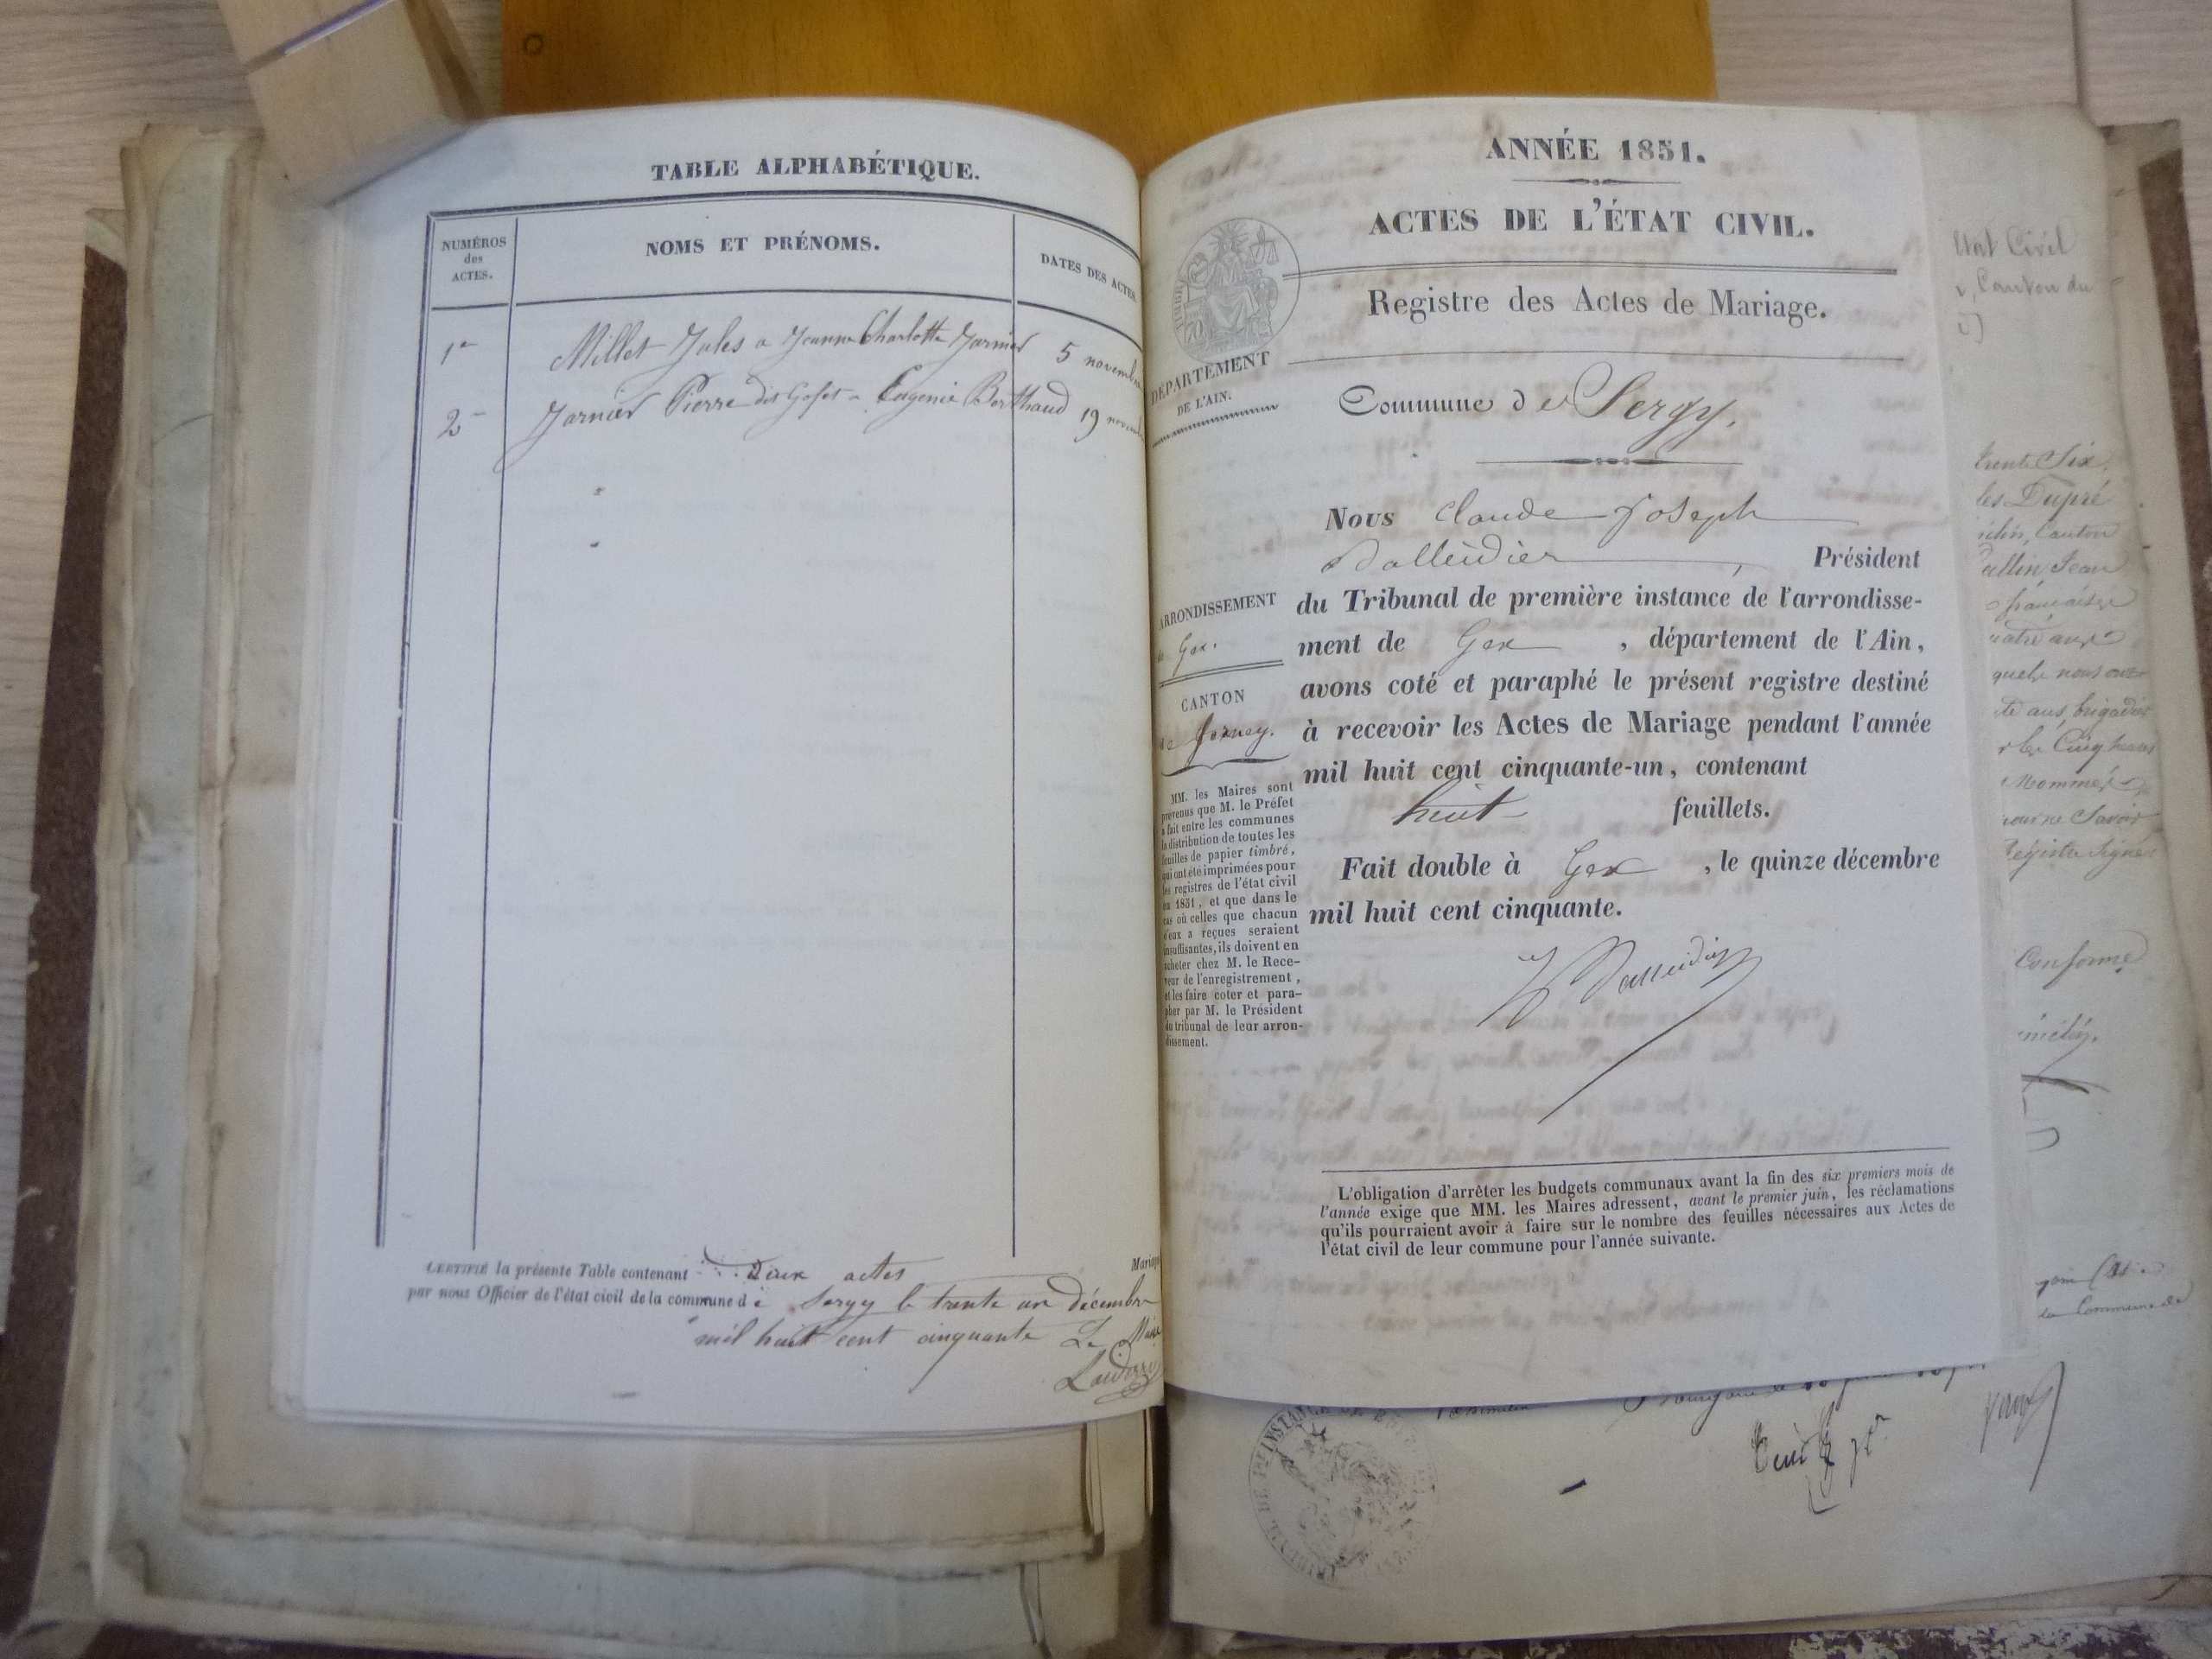 TABLE ALPHABÉTIQUE.
NUMÉROS
des
ACTES.
NOMS ET PRÉNOMS.
DATES DES ACTES
1er
Millet Jules a Jeanne Charlotte Jarnier 5 novembre
2
Jarnier Pierre dit Eugenie Berthaud 19
CERTIFIÉ la présente Table contenant Deux actes
Mariage
par nous Officier de l'état civil de la commune de Sergy le trente un décembre
mil huit cent cinquante Le Maire
ANNÉE 1851.
ACTES DE L'ÉTAT CIVIL.
Registre des Actes de Mariage.
DÉPARTEMENT
DE L'AIN.
Commune de Sergy.
Nous Claude Joseph
Balleidier, Président
du Tribunal de première instance de l'arrondisse-
ment de Gex, département de l'Ain,
avons coté et paraphé le présent registre destiné
à recevoir les Actes de Mariage pendant l'année
mil huit cent cinquante-un, contenant
huit feuillets.
Fait double à Gex, le quinze décembre
mil huit cent cinquante.
ARRONDISSEMENT
Gex.
CANTON
de Ferney.
MM. les Maires sont
prévenus que M. le Préfet
a fait entre les communes
la distribution de toutes les
feuilles de papier timbré,
qui ont été imprimées pour
les registres de l'état civil
en 1851, et que dans le
cas où celles que chacun
d'eux a reçues seraient
insuffisantes, ils doivent en
acheter chez M. le Rece-
veur de l'enregistrement,
et les faire coter et para-
pher par M. le Président
du tribunal de leur arron-
dissement.
L'obligation d'arrêter les budgets communaux avant la fin des six premiers mois de
l'année exige que MM. les Maires adressent, avant le premier juin, les réclamations
qu'ils pourraient avoir à faire sur le nombre des feuilles nécessaires aux Actes de
l'état civil de leur commune pour l'année suivante.
Civil
Canton du
trente Six
les Dupré
Canton
Jean
française
quels nous
brigadier
Cinq heures
Savoir
Conforme
la Commune de